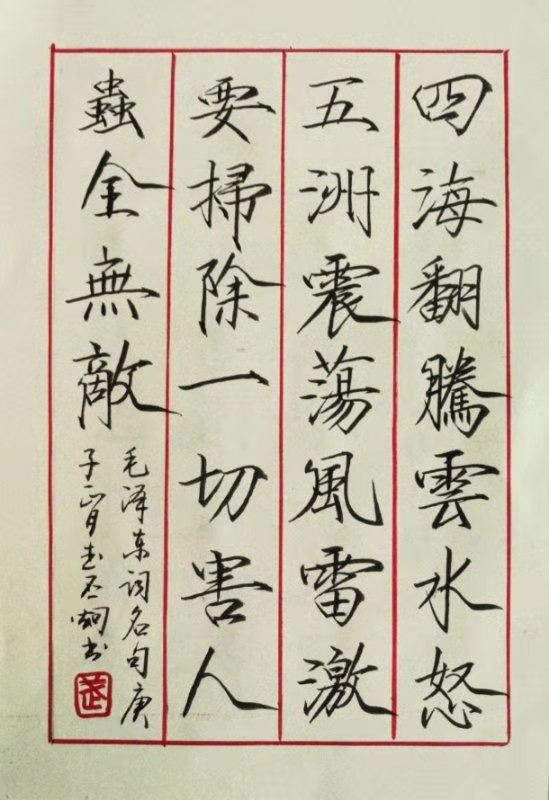 四海翻騰雲水怒
五洲震蕩風雷激
要掃除一切害人
蟲全無敵
毛泽东词名句庚
子二月
书
武